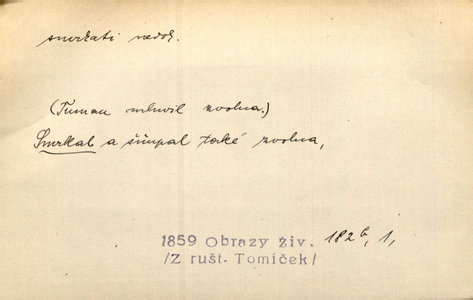 smrkati nedok.
(Tuman mluvil zvolna.)
Smrkal a šňupal také zvolna,
1859 Obrazy živ. 182b, 1,
/Z rušt. Tomíček/